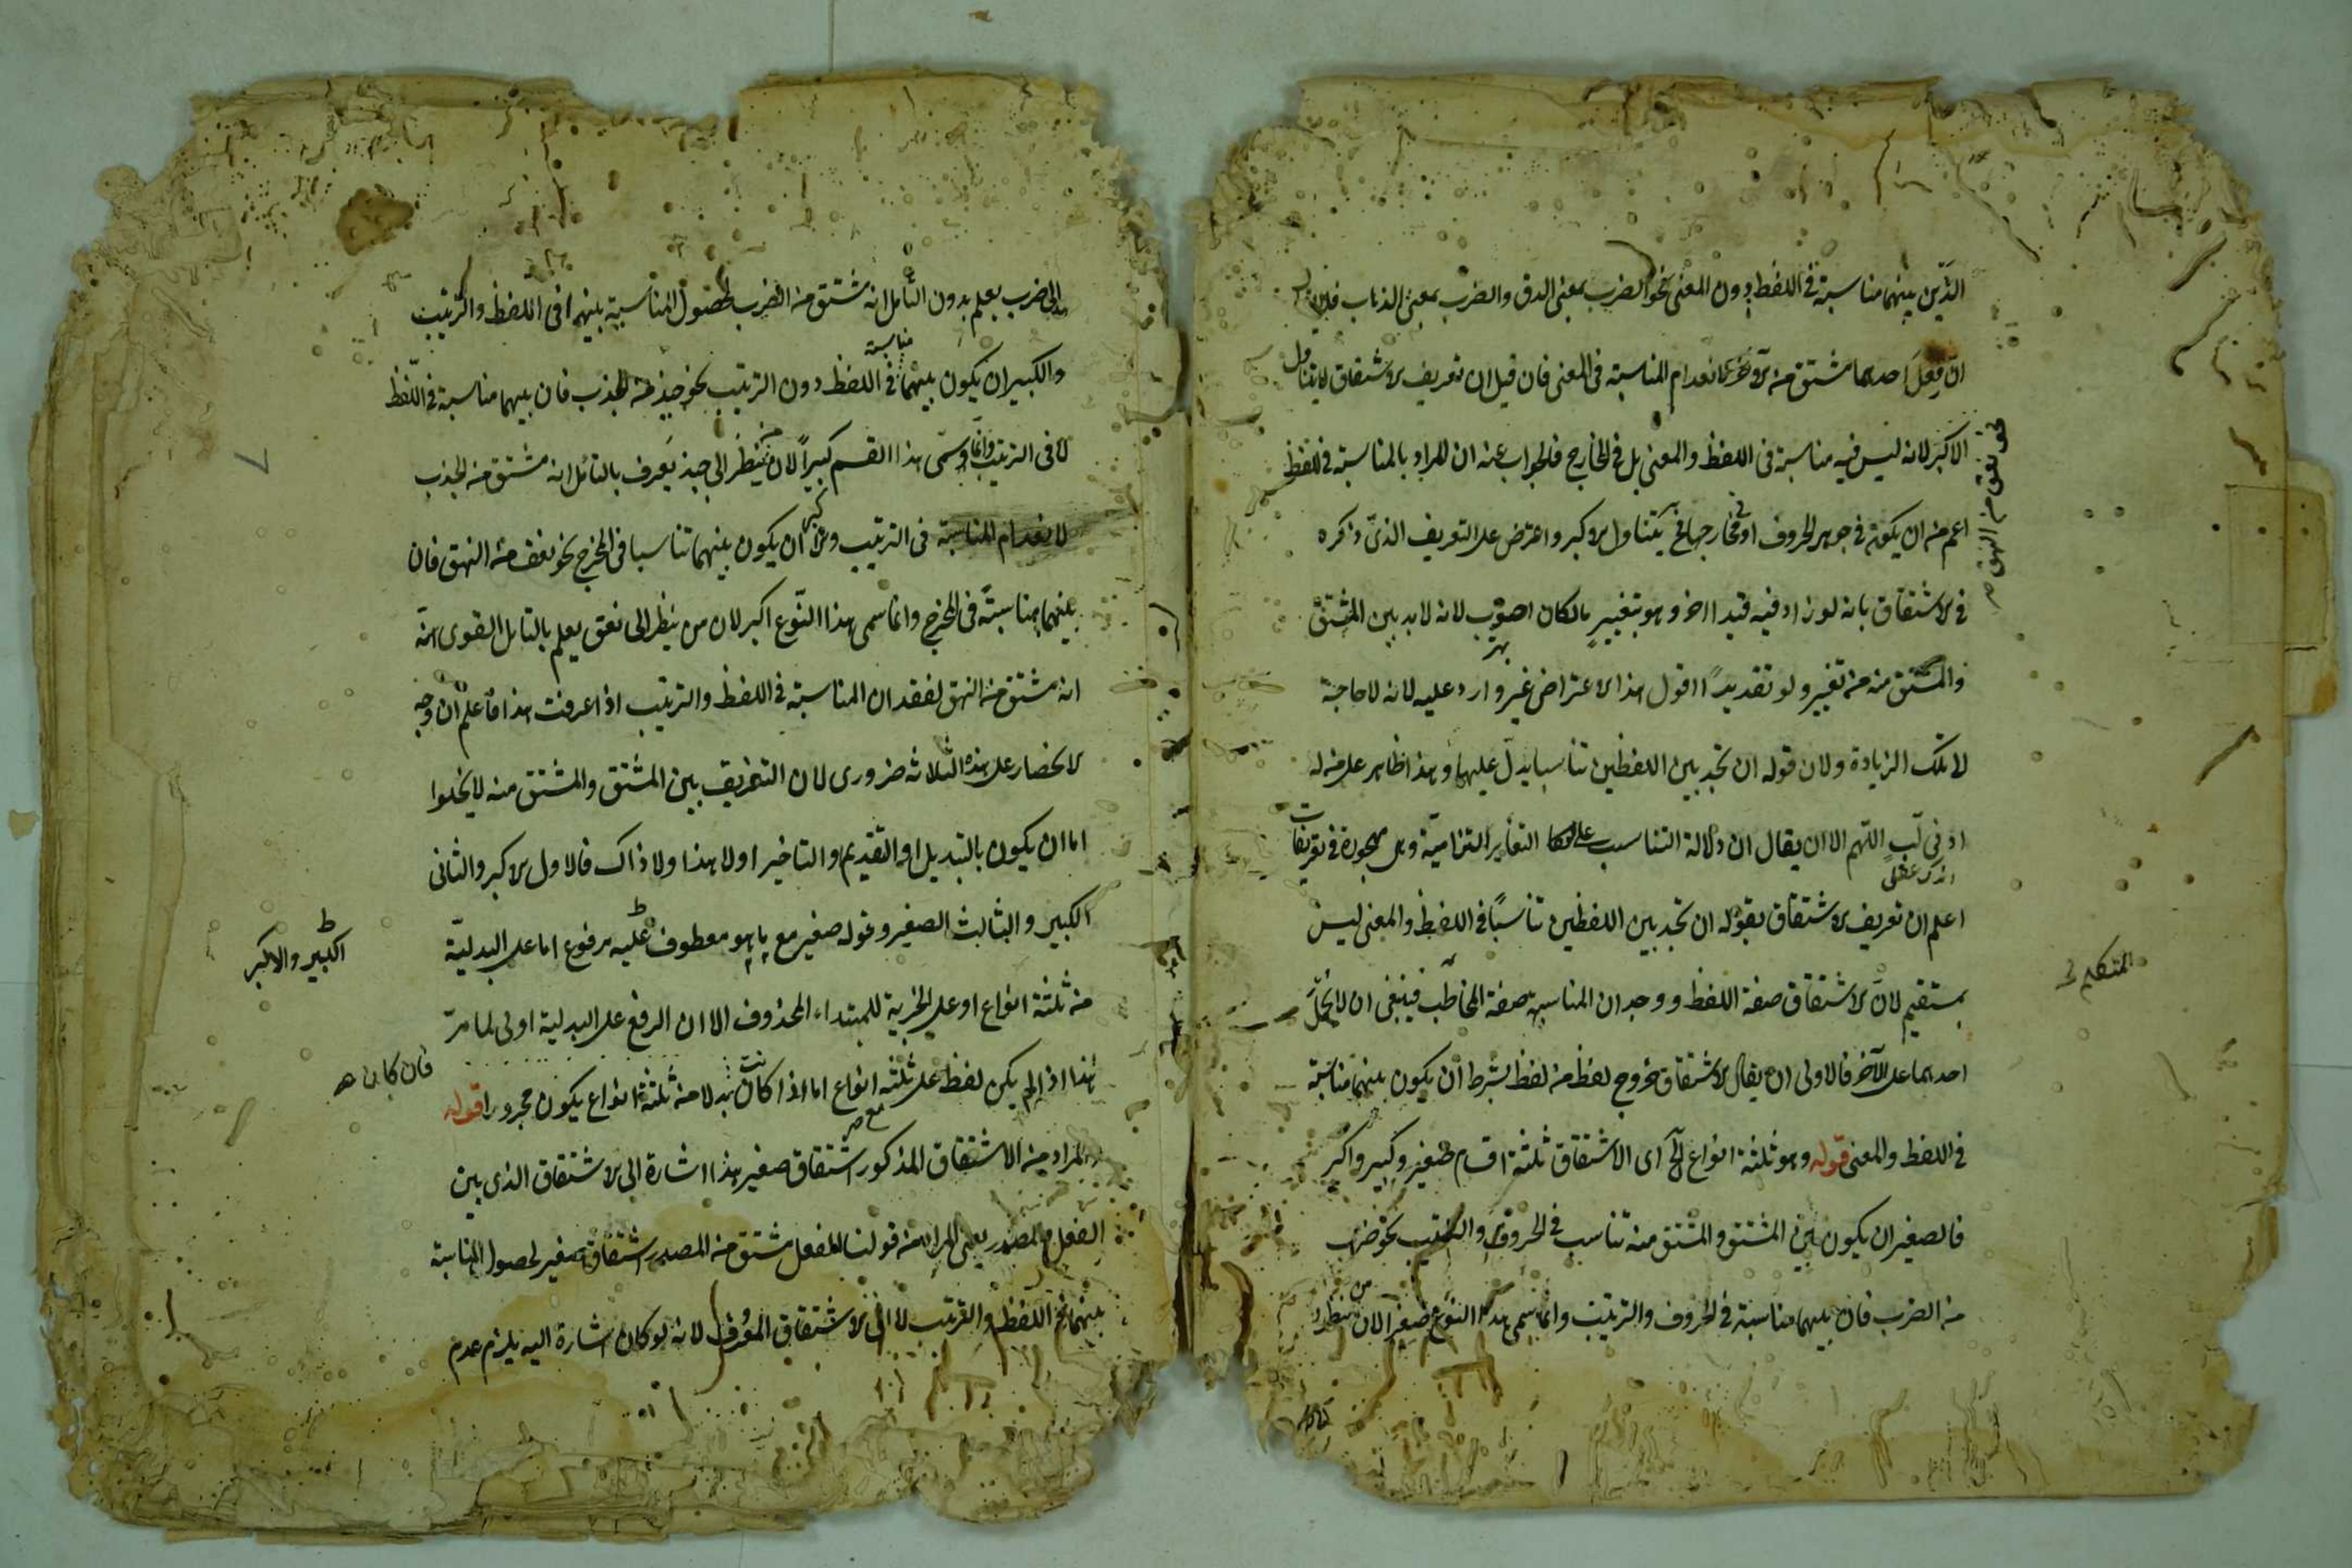 الذين بينهما مناسبة في اللفظ دون المعنى نحو الضرب بمعنى الدق والضرب بمعنى الذهاب فلا
ان فعل احدهما مشتق من الآخر لانعدام المناسبة في المعنى فان قيل ان تعريف الاشتقاق لا يتناول
الاكبر لانه ليس فيه مناسبة في اللفظ والمعنى بل في المخارج فالجواب عنه ان المراد بالمناسبة في اللفظ
اعم من ان يكون في جوهر الحروف او في مخارجها فح يتناول الاكبر واعترض على التعريف الذي ذكره
في الاشتقاق بانه لو زاد فيه قيدا آخر وهو بتغيير ما لكان اصوب لانه لا بد بين المشتق
والمشتق منه من تغيير ولو تقديرًا اقول هذا الاعتراض غير وارد عليه لانه لا حاجة
لا تلك الزيادة ولان قوله ان تجد بين اللفظين تناسبا يدل عليها وهذا ظاهر على من له
ادنى لب اللهم الا ان يقال ان دلالة التناسب على التغاير التزامية وهي مهجورة في تعريفات
اعلم ان تعريف الاشتقاق بقوله ان تجد بين اللفظين تناسبًا في اللفظ والمعنى ليس
بمستقيم لانّ الاشتقاق صفة اللفظ ووجدان المناسبة صفة المخاطب فينبغي ان لا يحمل
احدهما على الآخر فالاولى ان يقال الاشتقاق خروج لفظ من لفظ بشرط ان يكون بينهما مناسبة
في اللفظ والمعنى قوله وهو ثلثة انواع الخ اى الاشتقاق ثلثة اقسام صغير وكبير واكبر
فالصغير ان يكون بين المشتق والمشتق منه تناسب في الحروف والترتيب نحو ضرب
من الضرب فان بينهما مناسبة في الحروف والترتيب وانما سمى هذا النوع صغيرا لان من ينظر
المتكلم
الى ضرب يعلم بدون التأمل انه مشتق من الضرب لحصول المناسبة بينهما في اللفظ والترتيب
والكبير ان يكون بينهما مناسبة في اللفظ دون الترتيب نحو جبذ من الجذب فان بينهما مناسبة في اللفظ
لا في الترتيب وانما سمى هذا القسم كبيرًا لان من ينظر الى جبذ يعرف بالتأمل انه مشتق من الجذب
لانعدام المناسبة في الترتيب واكبر ان يكون بينهما تناسبا في المخرج نحو نعق من النهق فان
بينهما مناسبةً في المخرج وانما سمى هذا النوع اكبر لان من ينظر الى نعق يعلم بالتأمل القوى انه
انه مشتق من النهق لفقدان المناسبة في اللفظ والترتيب اذا عرفت هذا فاعلم ان وجه
الانحصار على هذه الثلاثة ضرورى لان التفريق بين المشتق والمشتق منه لا يخلوا
اما ان يكون بالتبديل او التقديم والتاخير اولا هذا ولا ذاك فالاول الاكبر والثانى
الكبير والثالث الصغير وقوله صغير مع ما هو معطوف عليه مرفوع اما على البدلية
من ثلثة انواع او على الخبرية للمبتداء المحذوف الا ان الرفع على البدلية اولى لما مر
هذا اذا لم يكن لفظ على ثلثة انواع اما اذا كانت بدلا من ثلثة انواع يكون مجرورا قوله
والمراد من الاشتقاق المذكور اشتقاق صغير هذا اشارة الى الاشتقاق الذى بين
الفعل والمصدر يعنى المراد من قولنا الفعل مشتق من المصدر اشتقاق صغير لحصول المناسبة
بينهما في اللفظ والترتيب لا الى الاشتقاق المعرف لانه لو كان اشارة اليه يلزم عدم
الكبير والاكبر
فان كان